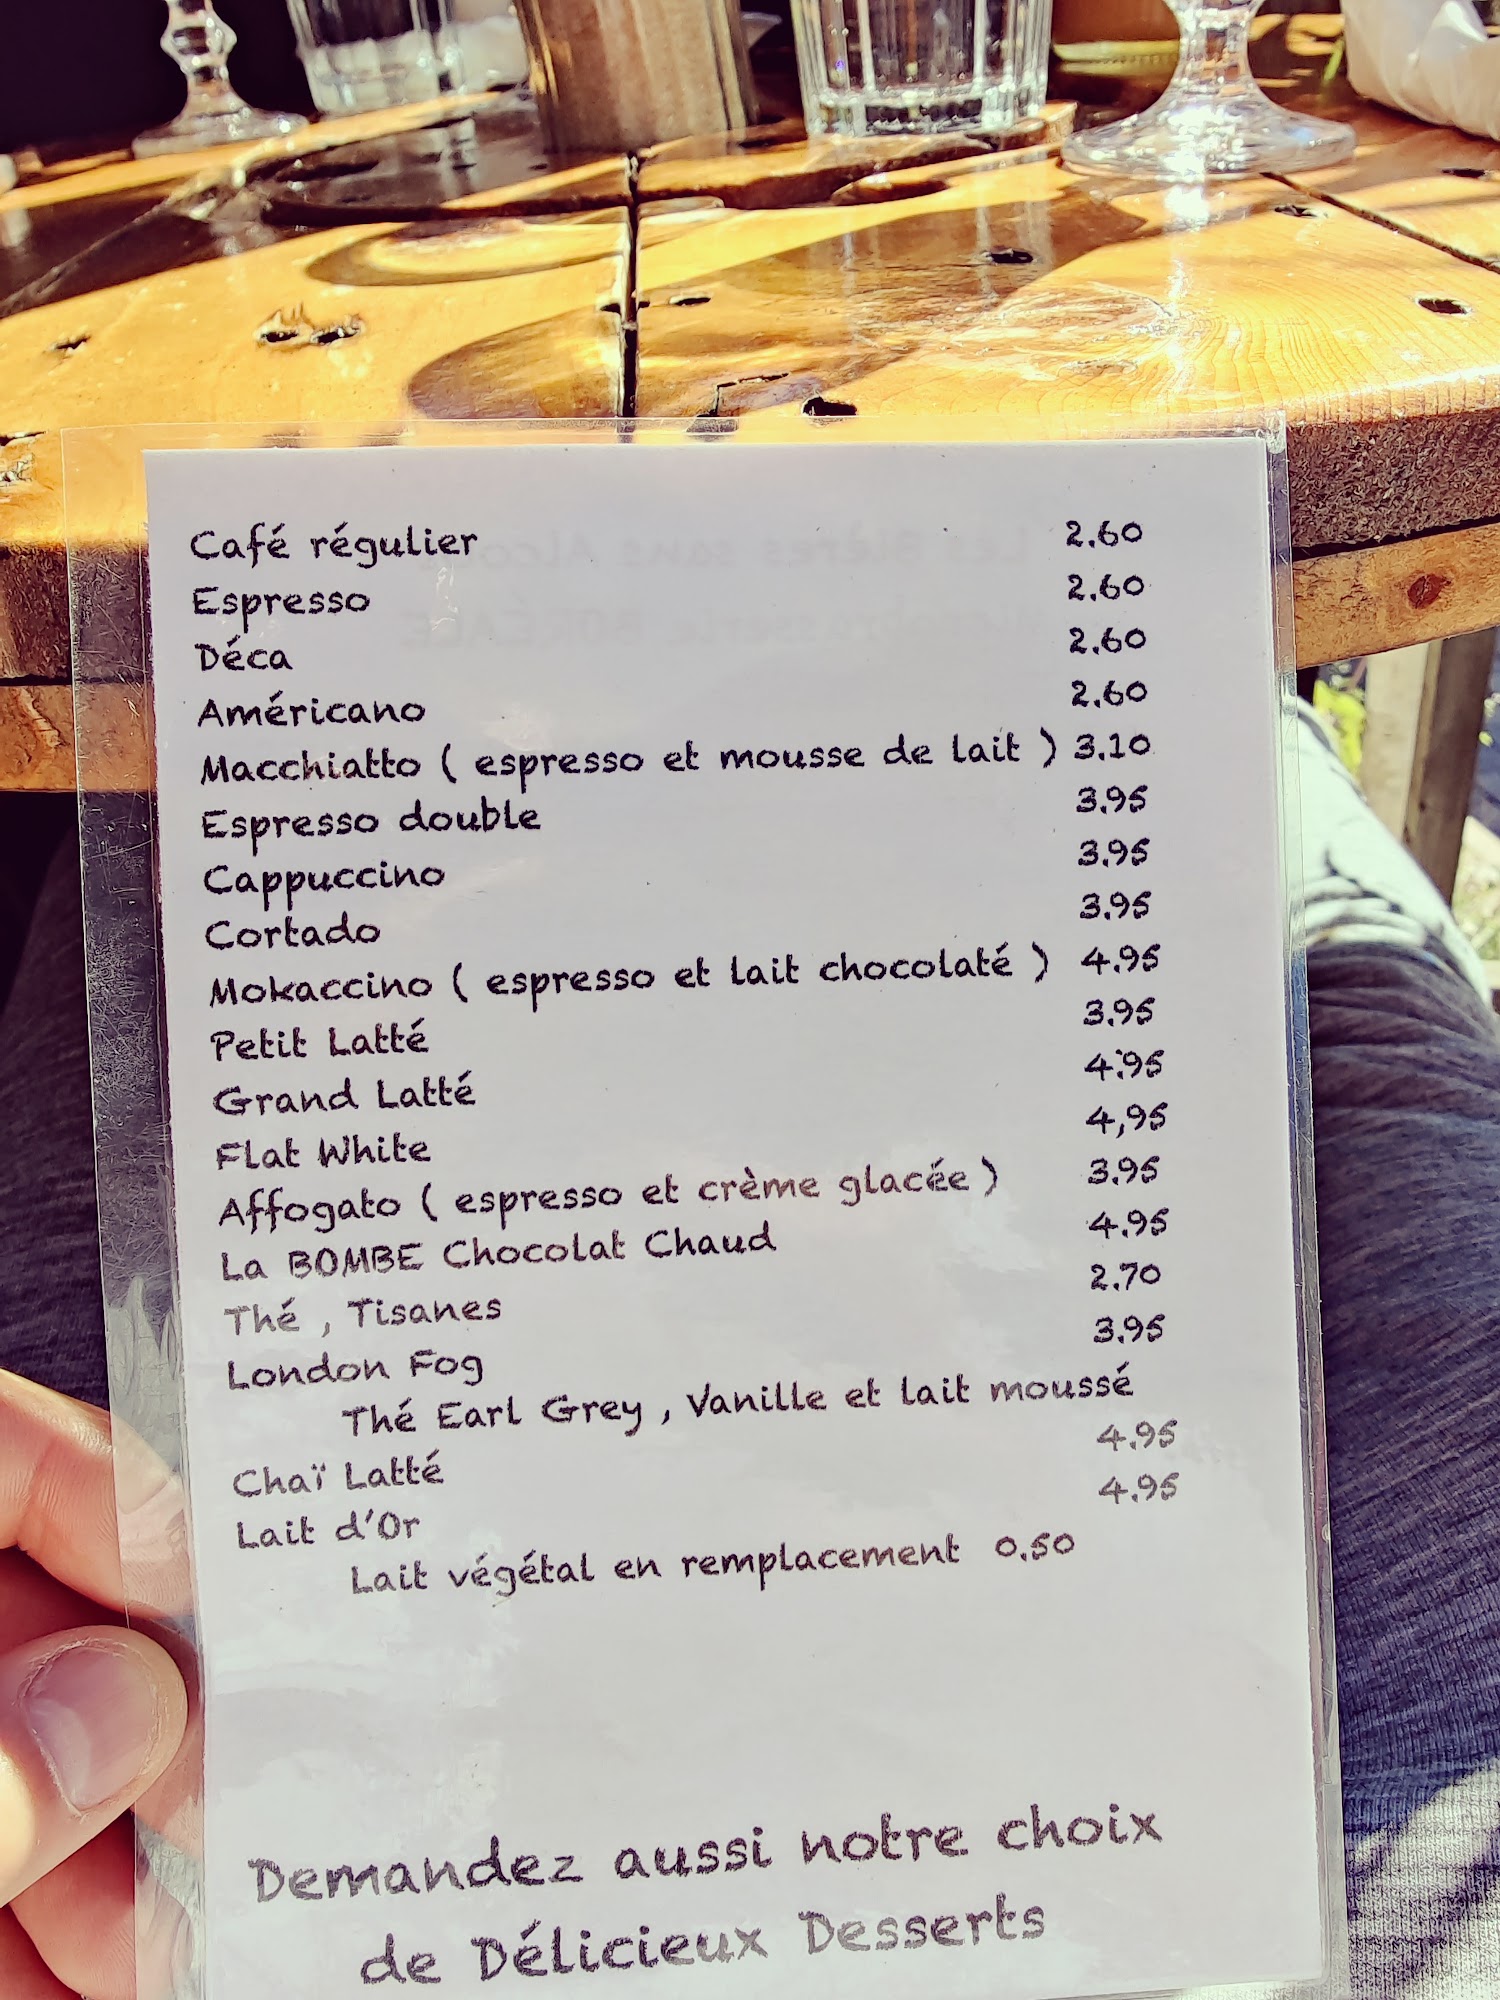 Café régulier 2.60
Espresso 2.60
Déca 2.60
Américano 2.60
Macchiatto ( espresso et mousse de lait ) 3.10
Espresso double 3.95
Cappuccino 3.95
Cortado 3.95
Mokaccino ( espresso et lait chocolaté ) 4.95
Petit Latté 3.95
Grand Latté 4.95
Flat White 4,95
Affogato ( espresso et crème glacée ) 3.95
La BOMBE Chocolat Chaud 4.95
Thé , Tisanes 2.70
London Fog 3.95
Thé Earl Grey , Vanille et lait moussé
Chaï Latté 4.95
Lait d'Or 4.95
Lait végétal en remplacement 0.50
Demandez aussi notre choix
de Délicieux Desserts